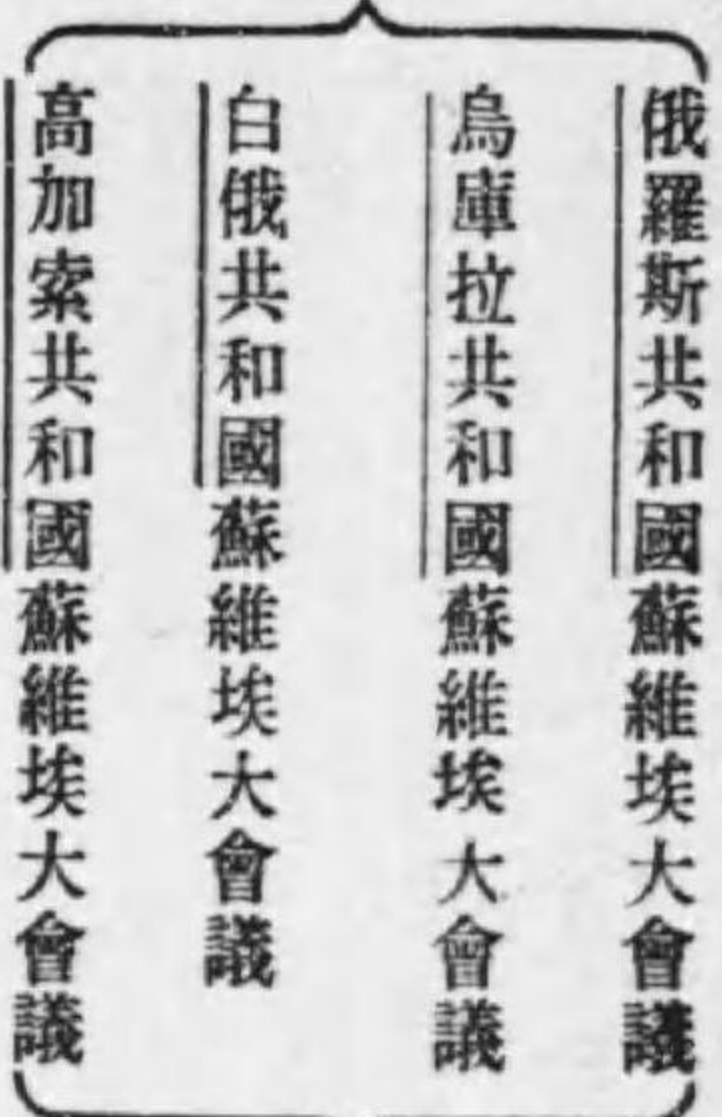 俄羅斯共和國蘇維埃大會議
烏庫拉共和國蘇維埃大會議
白俄共和國蘇維埃大會議
高加索共和國蘇維埃大會議